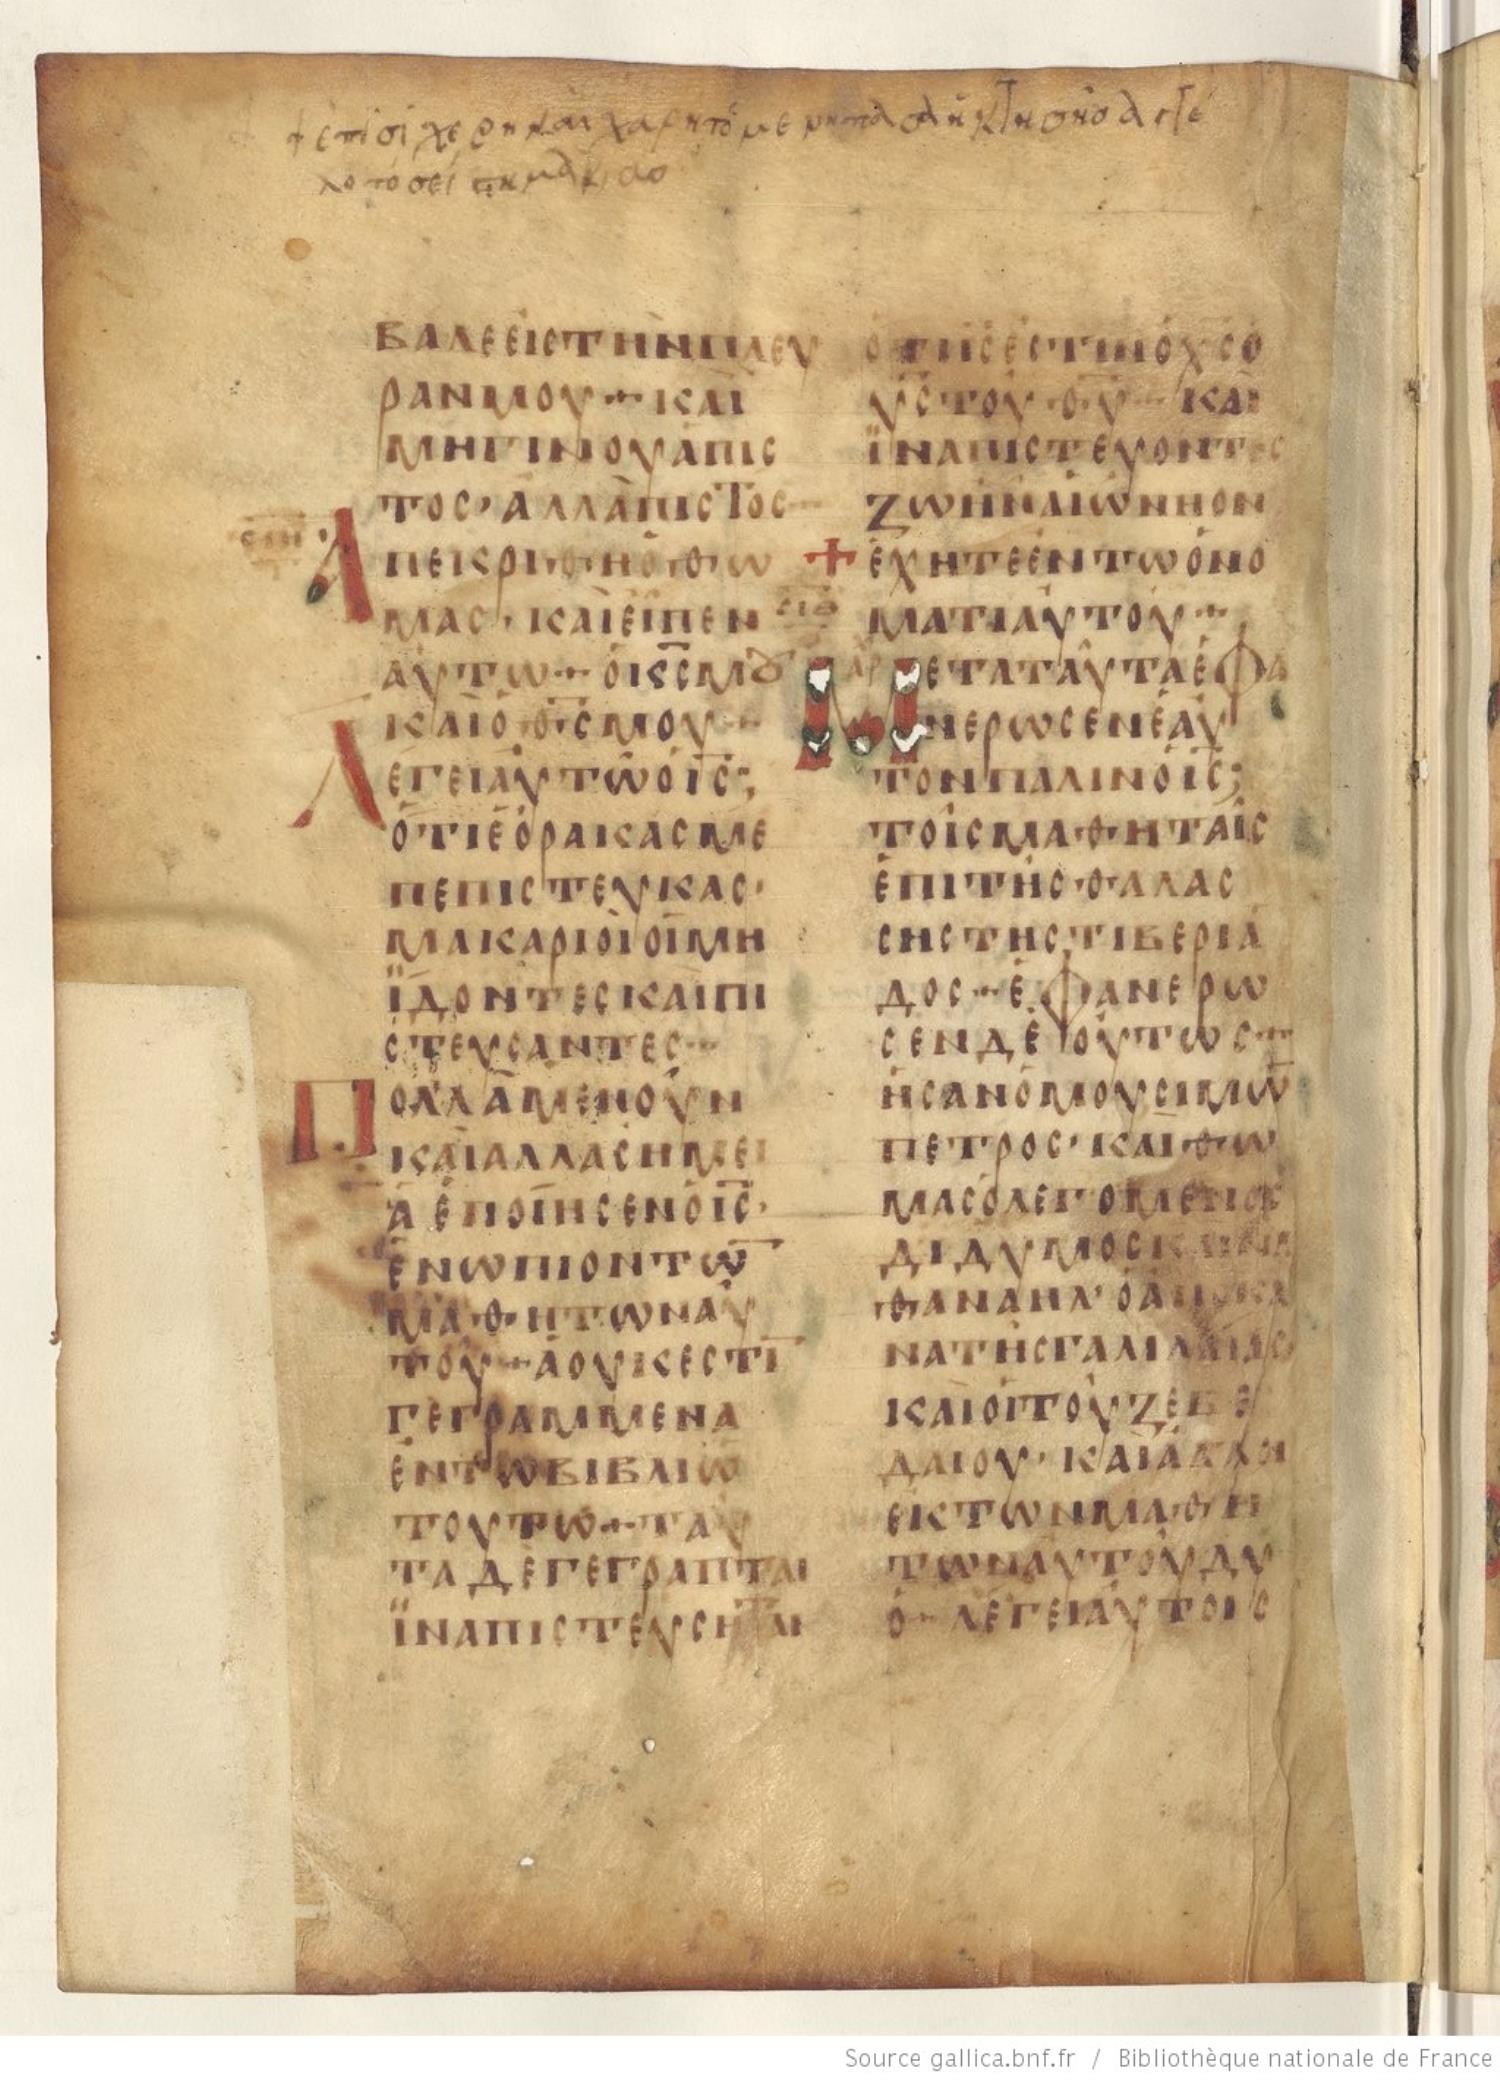 ἐπὶ σὶ χερη καὶ χαρητομενη πασα ἡ κτησης
βαλεεἰςτὴνπλευ
ρανμου καὶ
μὴγινουἀπις
τος, ἀλλὰπιςτος
Ἀπεκρίθηὁθω
μας, καὶεἶπεν
αὐτω ὁκςμου
καὶὁθςμου
Λέγειαὐτῶὁις;
ὅτιἑόρακαςμε
πεπιςτευκας·
μακαριοιοἱμὴ
ἴδοντεςκαὶπι
ςτευςαντες
Πολλὰμὲνοὖν
καὶαλλαςημεῖ
ἀἐποίηςενὁις·
ἐνωπιοντῶ
μαθητωναὐ
τοῦ ἁουκεςτι
γεγραμμενα
ἐντωβιβλιω
τουτω ταῦ
ταδὲγεγραπται
ἵναπιςτευςηται
ὅτιιςἐςτινὁχςὁ
υἱςτοῦθυ καὶ
ἵναπιςτευοντες
ζωὴναἰώνηον
ἔχητεἐντωὀνό
ματιαὐτοῦ
ςιθ
Μετατᾶυταἐφα
νερωςενἑαυ
τὸνπαλινὁις;
τοῖςμαθηταῖς
ἐπιτῆςθαλλας
ςηςτῆςτιβεριά
δος ἐφανερω
ςενδὲοὕτως
ἦςανὁμουςιμῶ
πετρος· καιθω
μαςὁλεγομενος
διδυμοςκαινα
θαναηλ· ὁαποκα
νατῆςγαλιλαίας·
καὶοἱτοῦζεβε
δαιου· καὶἄλλοι
ἐκτωνμαθη
τωναυτοῦδυ
ὁ λέγειαὐτοις
Source gallica.bnf.fr / Bibliothèque nationale de France